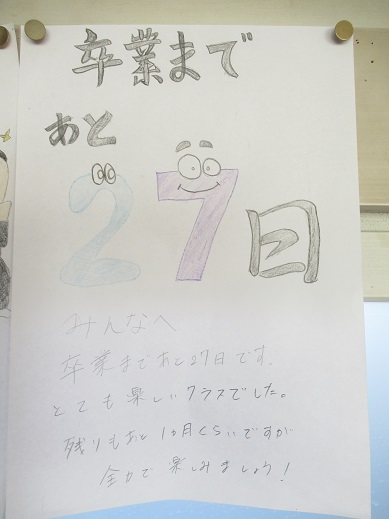 卒業まで
あと
27日
みんなへ
卒業まであと27日です。
とても楽しいクラスでした。
残りもあと1ヵ月くらいですが
全力で楽しみましょう!